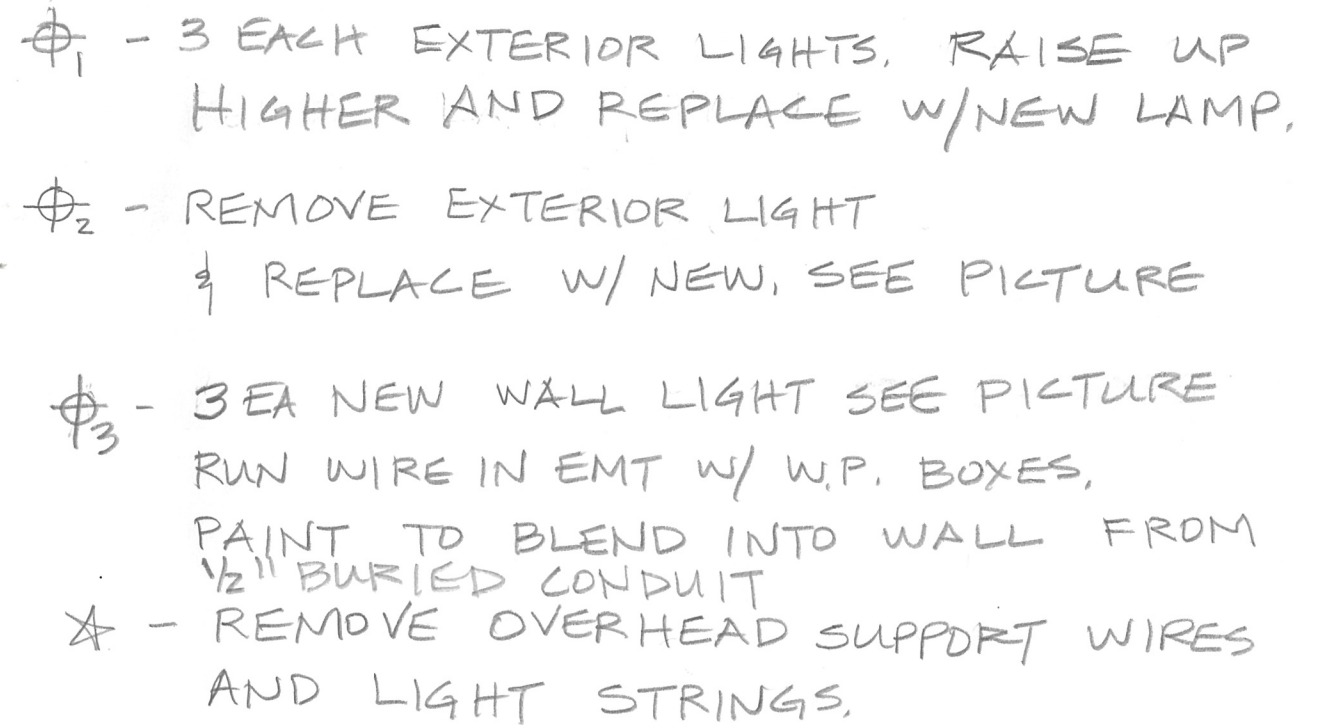 ⌽1 - 3 EACH EXTERIOR LIGHTS. RAISE UP
HIGHER AND REPLACE W/NEW LAMP.
⌽2 - REMOVE EXTERIOR LIGHT
& REPLACE W/ NEW, SEE PICTURE
⌽3 - 3 EA NEW WALL LIGHT SEE PICTURE
RUN WIRE IN EMT W/ W.P. BOXES,
PAINT TO BLEND INTO WALL FROM
1/2" BURIED CONDUIT
☆ - REMOVE OVERHEAD SUPPORT WIRES
AND LIGHT STRINGS.